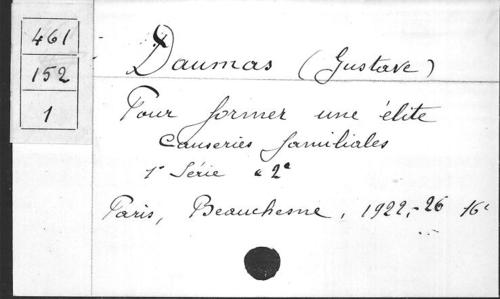 461
152
1
Daumas (Gustave)
Pour former une élite
Causeries familiales
1e Série & 2e
Paris, Beauchesne, 1922-26 16e